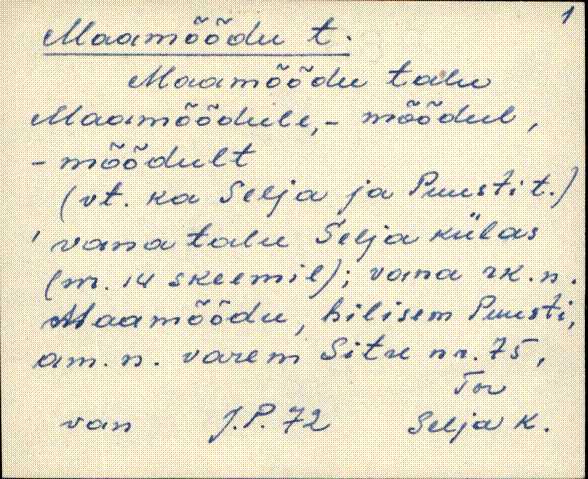 1
Maamõõdu t.
Maamõõdu talu
Maamõõdule, - mõõdul,
- mõõdult
(vt. ka Selja ja Puusti t.)
' vana talu Selja külas
(nr. 14 skeemil); vana rk. n.
Maamõõdu, hilisem Puusti,
am. n. varem Sitre nr. 75,
Tor
van J.P. 72 Selja k.